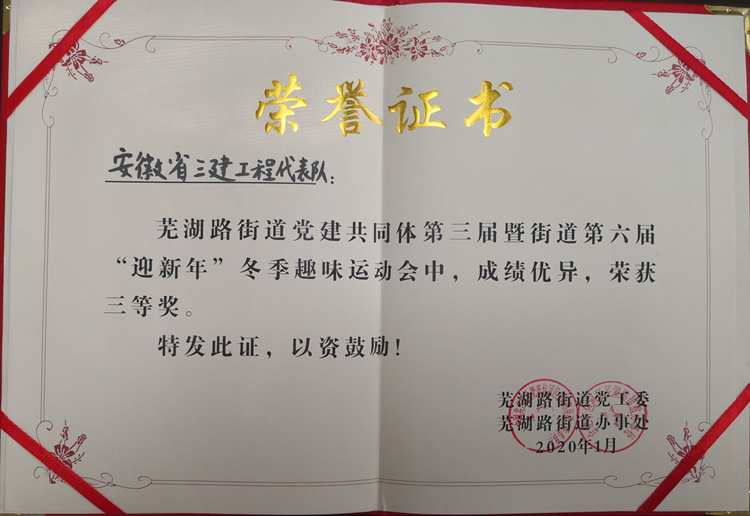 荣誉证书
安徽省三建工程代表队：
芜湖路街道党建共同体第三届暨街道第六届
“迎新年”冬季趣味运动会中，成绩优异，荣获
三等奖。
特发此证，以资鼓励！
芜湖路街道党工委
芜湖路街道办事处
2020年1月